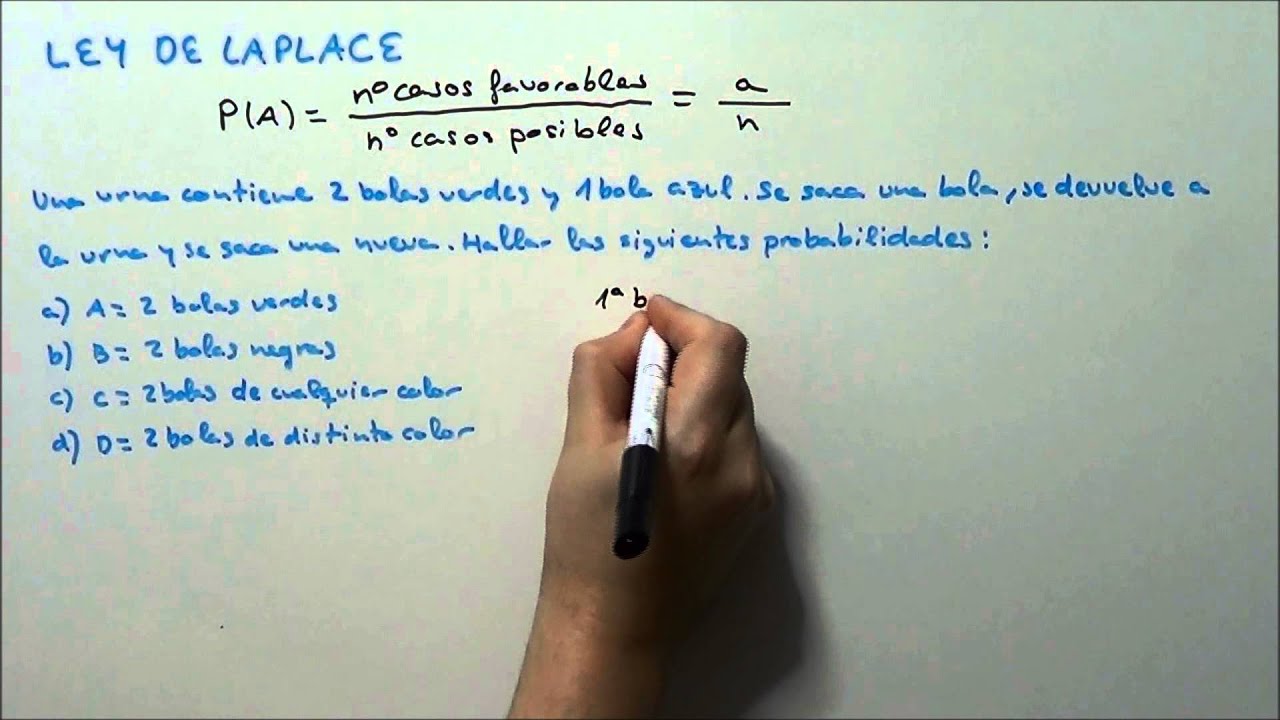 LEY DE LAPLACE
P(A) = nº casos favorables / nº casos posibles = a / n
Una urna contiene 2 bolas verdes y 1 bola azul. Se saca una bola, se devuelve a
la urna y se saca una nueva. Hallar las siguientes probabilidades:
a) A = 2 bolas verdes
b) B = 2 bolas negras
c) C = 2 bolas de cualquier color
d) D = 2 bolas de distinto color
1ª b